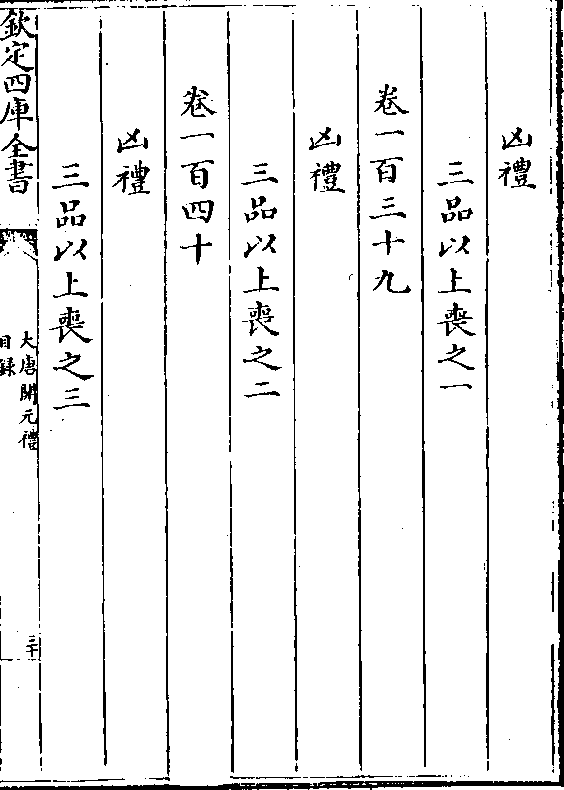 凶禮
三品以上喪之一
卷一百三十九
凶禮
三品以上喪之二
卷一百四十
凶禮
三品以上喪之三
欽定四庫全書
大唐開元禮
目錄
三十